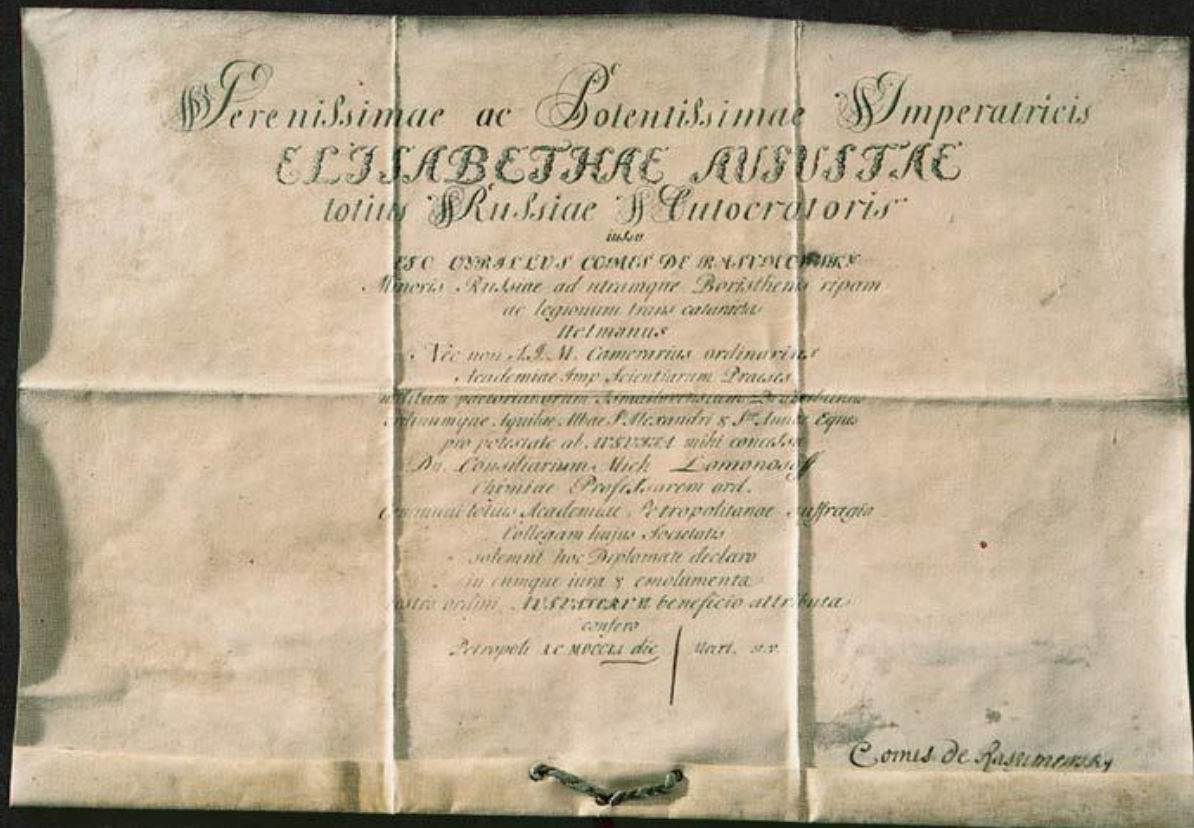 Serenissimae ac Potentissimae Imperatricis
ELISABETHAE AUGUSTAE
totius Russiae Autocratoris
iussu
EGO CYRILLUS COMES DE RASUMOWSKY
Minoris Russiae ad utramque Boristhenis ripam
ac legionum trans cataractas
Hetmanus
Nec non S.I.M. Camerarius ordinarius
Academiae Imp Scientiarum Praeses
ordinumque Aquilae Albae S. Alexandri & Stae Annae Eques
pro potestate ab AUGUSTA mihi concessa
Dn. Consiliarium Mich Lomonosoff
Chimiae Professorem ord.
communi totius Academiae Petropolitanae suffragio
Collegam hujus Societatis
solemni hoc Diplomate declaro
in eumque iura & emolumenta
nostro ordini AUGUSTORUM beneficio attributa
confero
Petropoli MDCCLI die Mart.
Comes de Rasumowsky